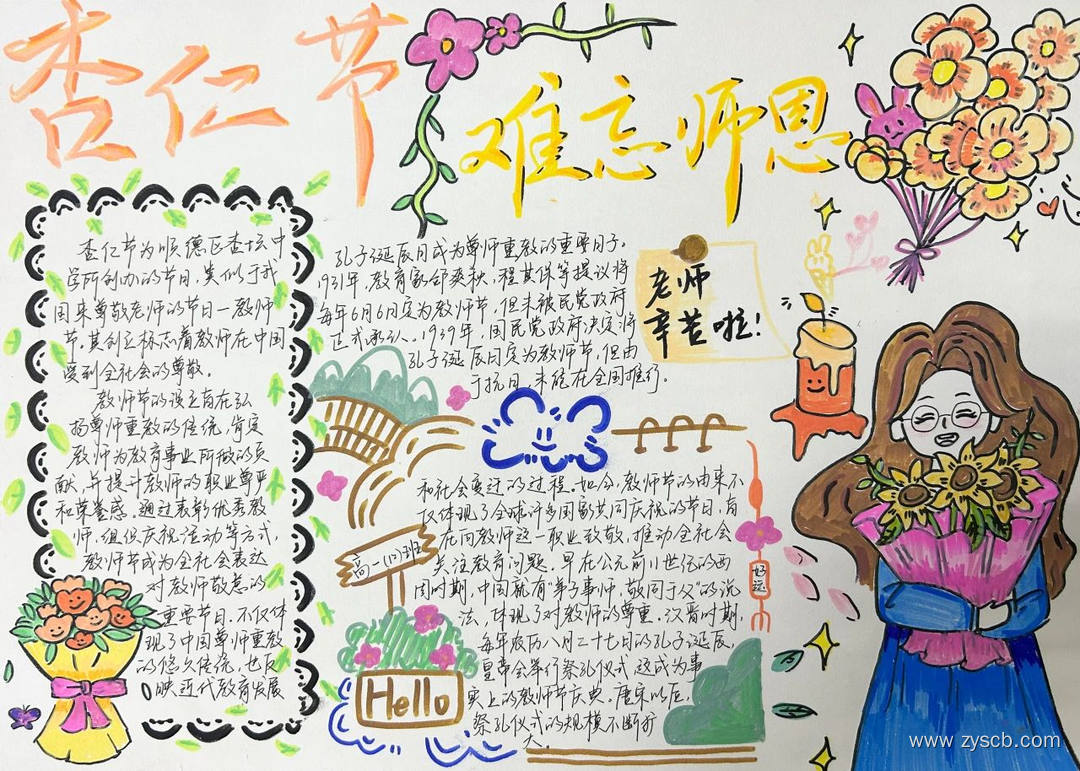 杏仁节
难忘师恩
杏仁节为顺德区杏坛中
学所创办的节日，类似于我
国来尊敬老师的节日一教师
节，其创立标志着教师在中国
受到全社会的尊敬。
教师节的设立旨在弘
扬尊师重教的传统，肯定
教师为教育事业所做的贡
献，并提升教师的职业尊严
和荣誉感。通过表彰优秀教
师，组织庆祝活动等方式，
教师节成为全社会表达
对教师敬意的
重要节日。不仅体
现了中国尊师重教
的悠久传统，也反
映近代教育发展
孔子诞辰日成为尊师重教的重要日子。
1931年，教育家邰爽秋、程其保等提议将
每年6月6日定为教师节，但未被民党政府
正式承认。1939年，国民党政府决定将
孔子诞辰日定为教师节，但由
于抗日，未能在全国推行。
老师
辛苦啦！
和社会变迁的过程。如今，教师节的由来不
仅体现了全球许多国家共同庆祝的节日，旨
在向教师这一职业致敬，推动全社会
关注教育问题。早在公元前11世纪的西
周时期，中国就有"弟子事师，敬同于父"的说
法，体现了对教师的尊重。汉晋时期，
每年农历八月二十七日的孔子诞辰，
皇帝会举行祭孔仪式，这成为事
实上的教师节庆典。唐宋以后，
祭孔仪式的规模不断扩
大。
高一(12)班
Hello
好运
www.zyscb.com